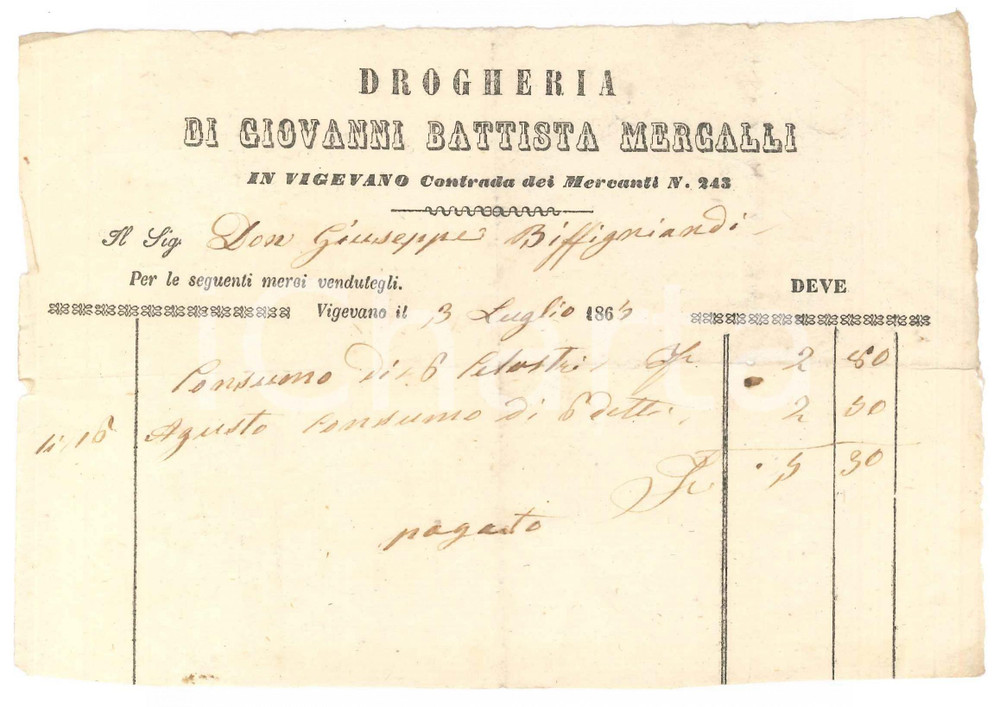 DROGHERIA
DI GIOVANNI BATTISTA MERCALLI
IN VIGEVANO Contrada dei Mercanti N. 243
Il Sig. Don Giuseppe Biffigniandi
Per le seguenti merci vendutegli. DEVE
Vigevano il 3 Luglio 186
Consumo di 6 2 80
li 16 Agusto Consumo di 6 detti 2 50
5 30
pagato